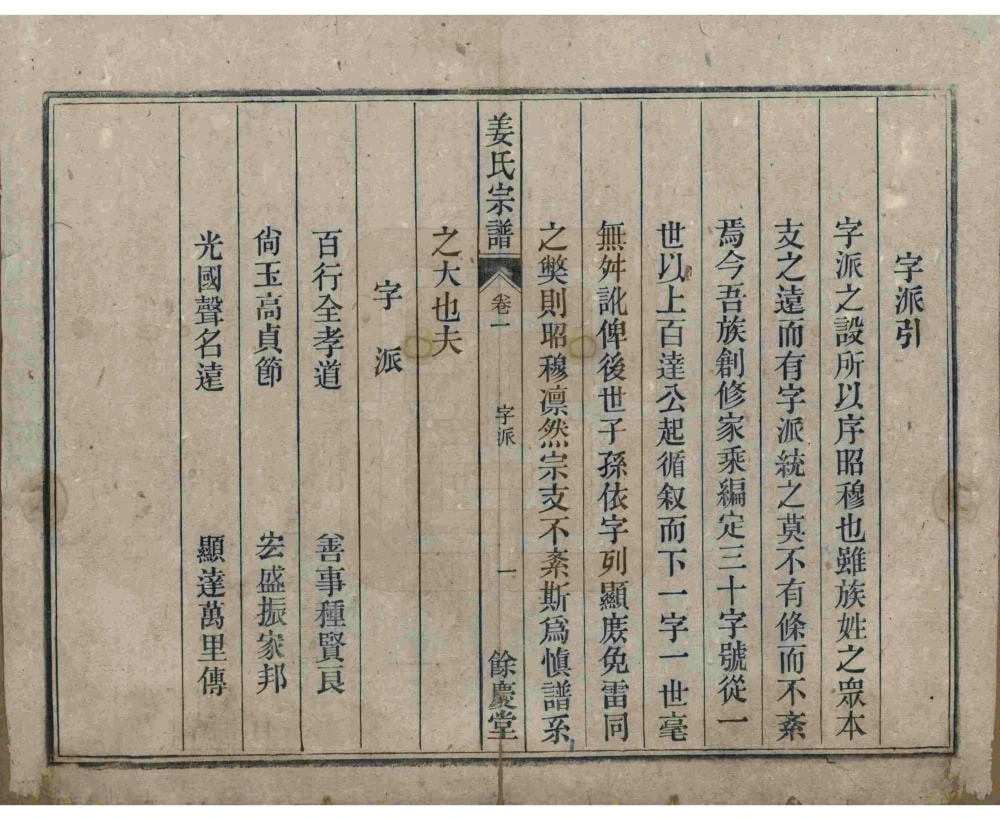 字派引
字派之設所以序昭穆也雖族姓之眾本
支之遠而有字派統之莫不有條而不紊
焉今吾族創修家乘編定三十字號從一
世以上百達公起循叙而下一字一世毫
無舛訛俾後世子孫依字列顯庶免雷同
之獘則昭穆凛然宗支不紊斯為慎譜系
之大也夫
字派
百行全孝道 善事種賢良
尙玉高貞節 宏盛振家邦
光國聲名遠 顯達萬里傳
姜氏宗譜 卷一 字派 一 餘慶堂